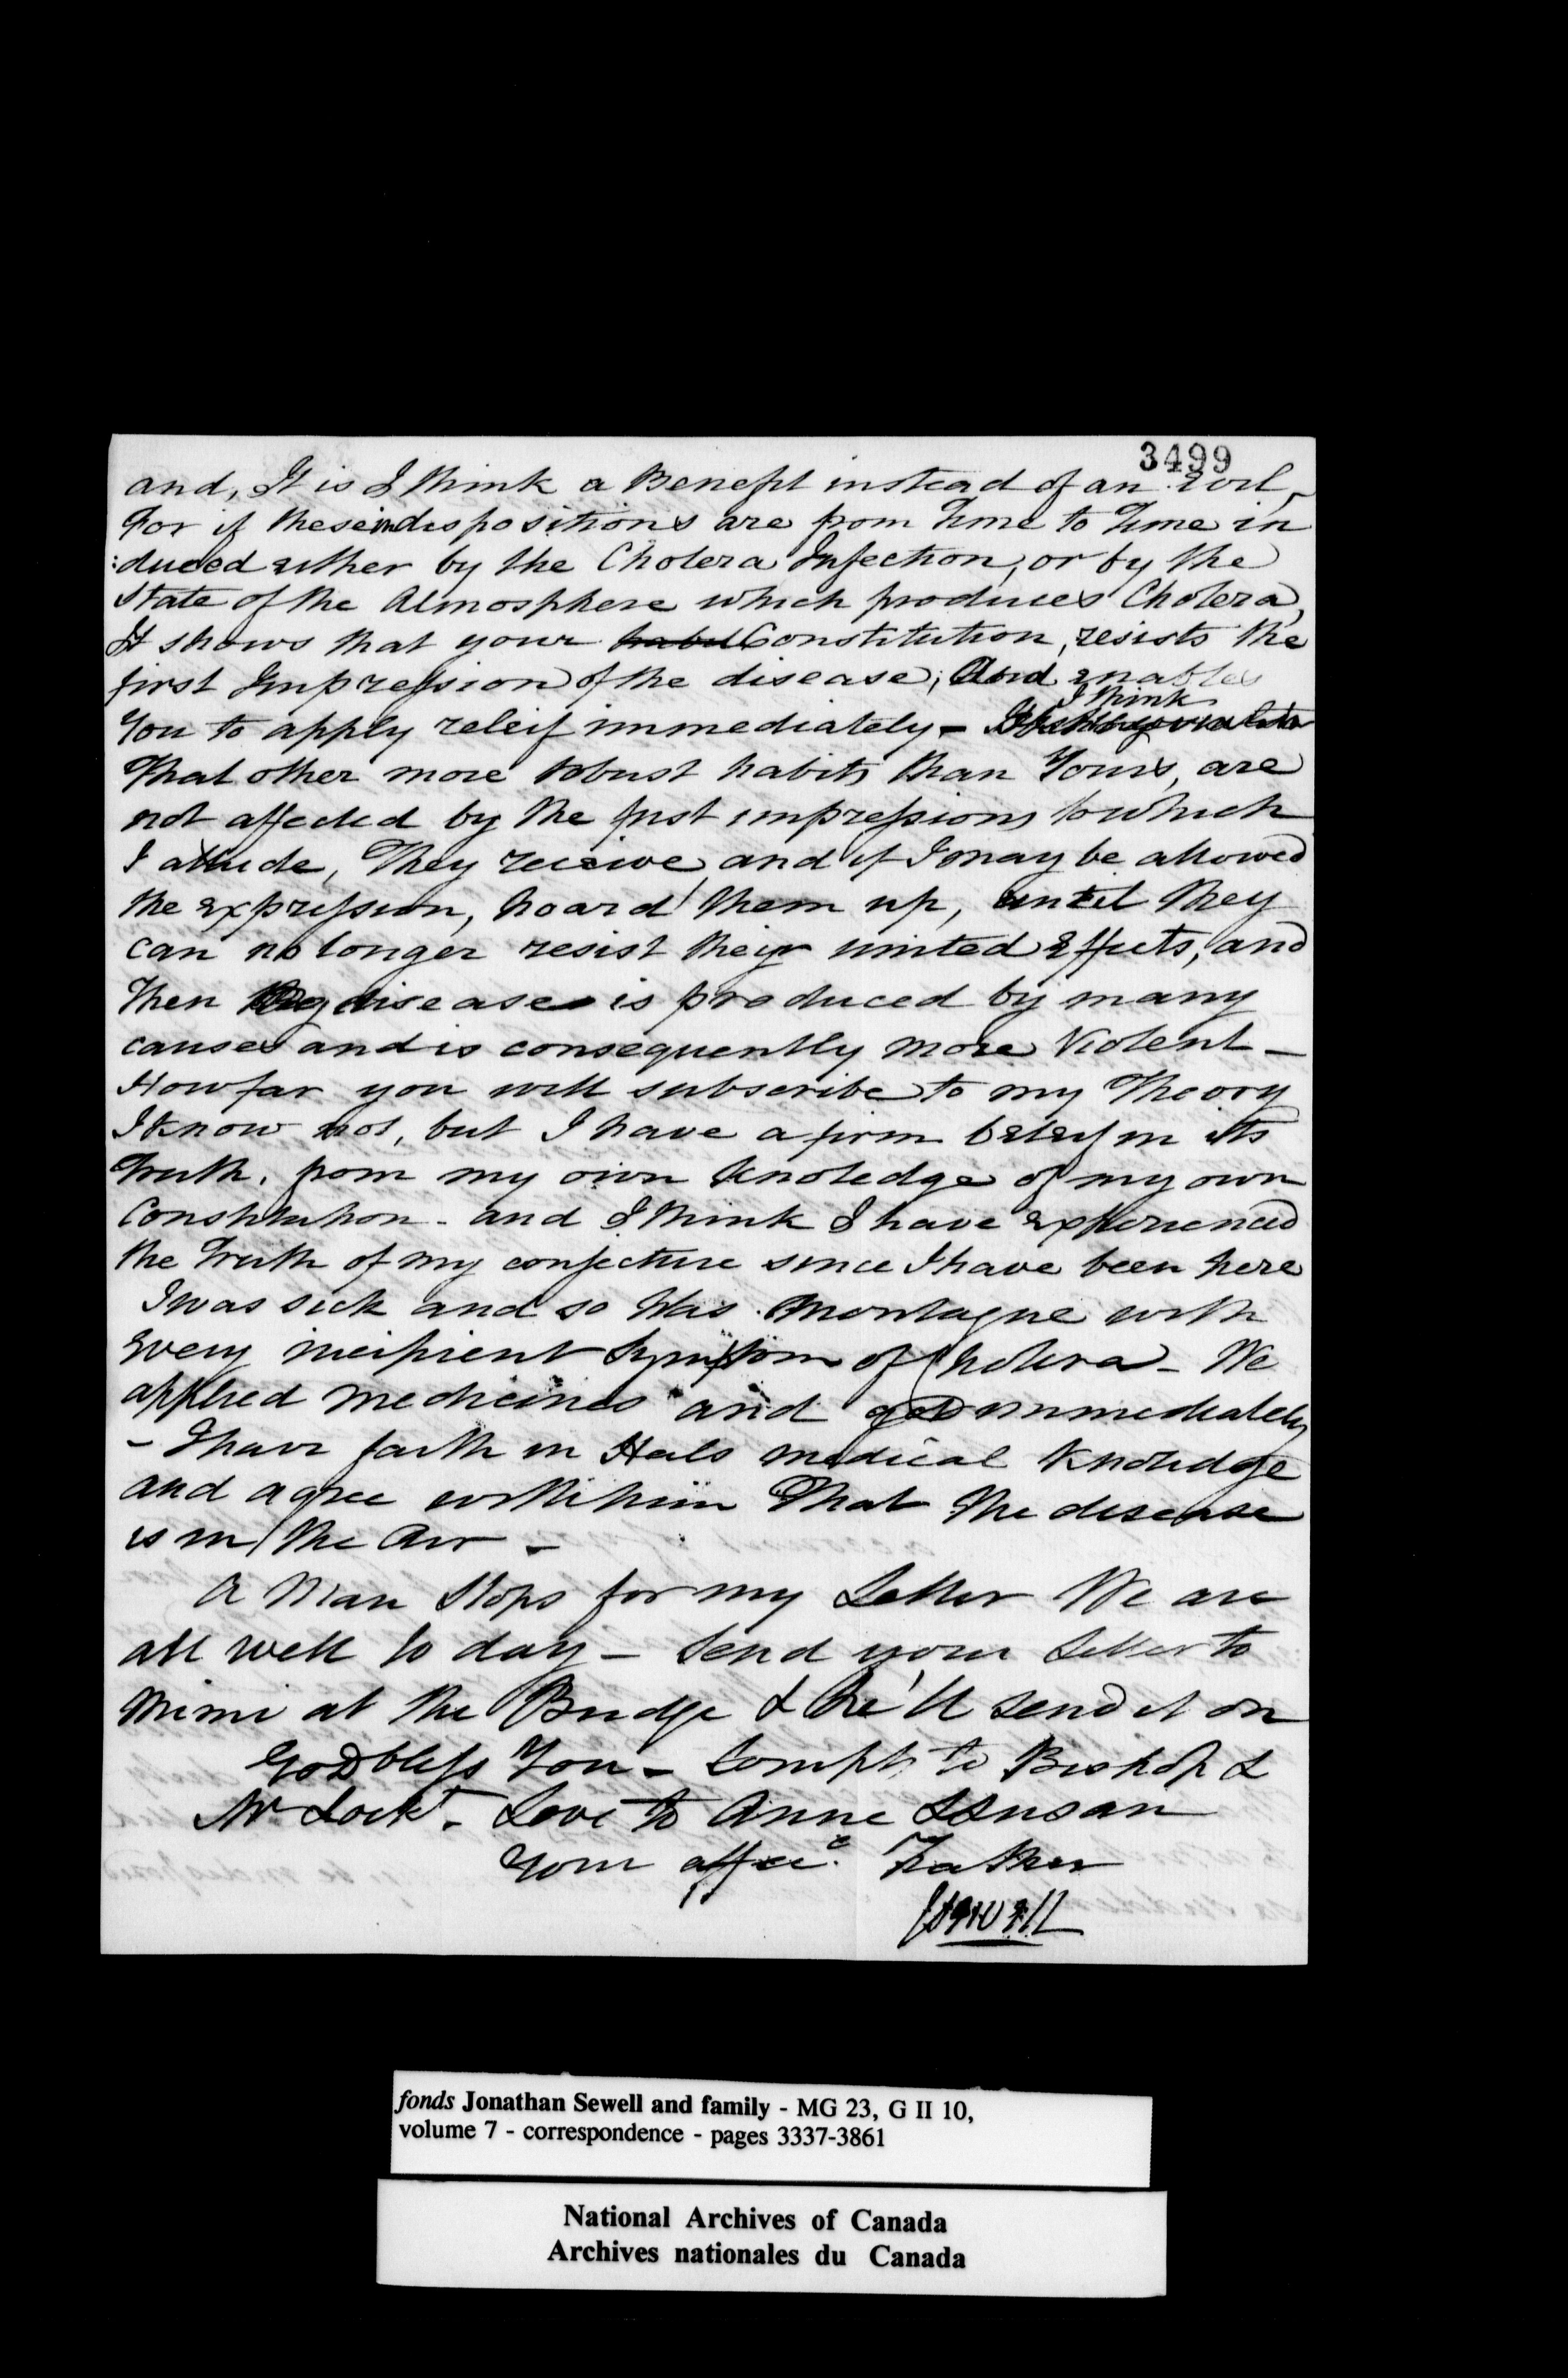 3499
and, It is I think a Benefit instead of an Evil,
For if these indispositions are from Time to Time in
:duced either by the Cholera Infection, or by the
State of the Atmosphere which produces Cholera,
It shows that your Constitution, resists the
first Impression of the disease; And enables
I think
You to apply releif immediately –
That other more robust habits than Yours, are
not affected by the first impressions to which
I allude, They receive, and if I may be allowed
the expression, hoard them up, until they
can no longer resist their united Effects, and
Then disease is produced by many
causes and is consequently more Violent –
How far you will subscribe to my Theory
I know not, but I have a firm beleif in its
Truth, from my own knoledge of my own
Constitution – and I think I have experienced
the Truth of my conjecture since I have been here
I was sick and so was Montague with
every incipient Symptom of Cholera – We
applied medicines and immediately
– I have faith in Hals medical knoledge
and agree with him That the disease
is in the Air –
A Man Stops for my Letter We are
all well to day – Send your Letter to
Mimi at the Bridge & he'll send it on
God bless You – Compts to Bishop &
Mr Lockt. Love to Anne & Susan
Your affece. Father
JSewell
fonds Jonathan Sewell and family - MG 23, G II 10,
volume 7 - correspondence - pages 3337-3861
National Archives of Canada
Archives nationales du Canada